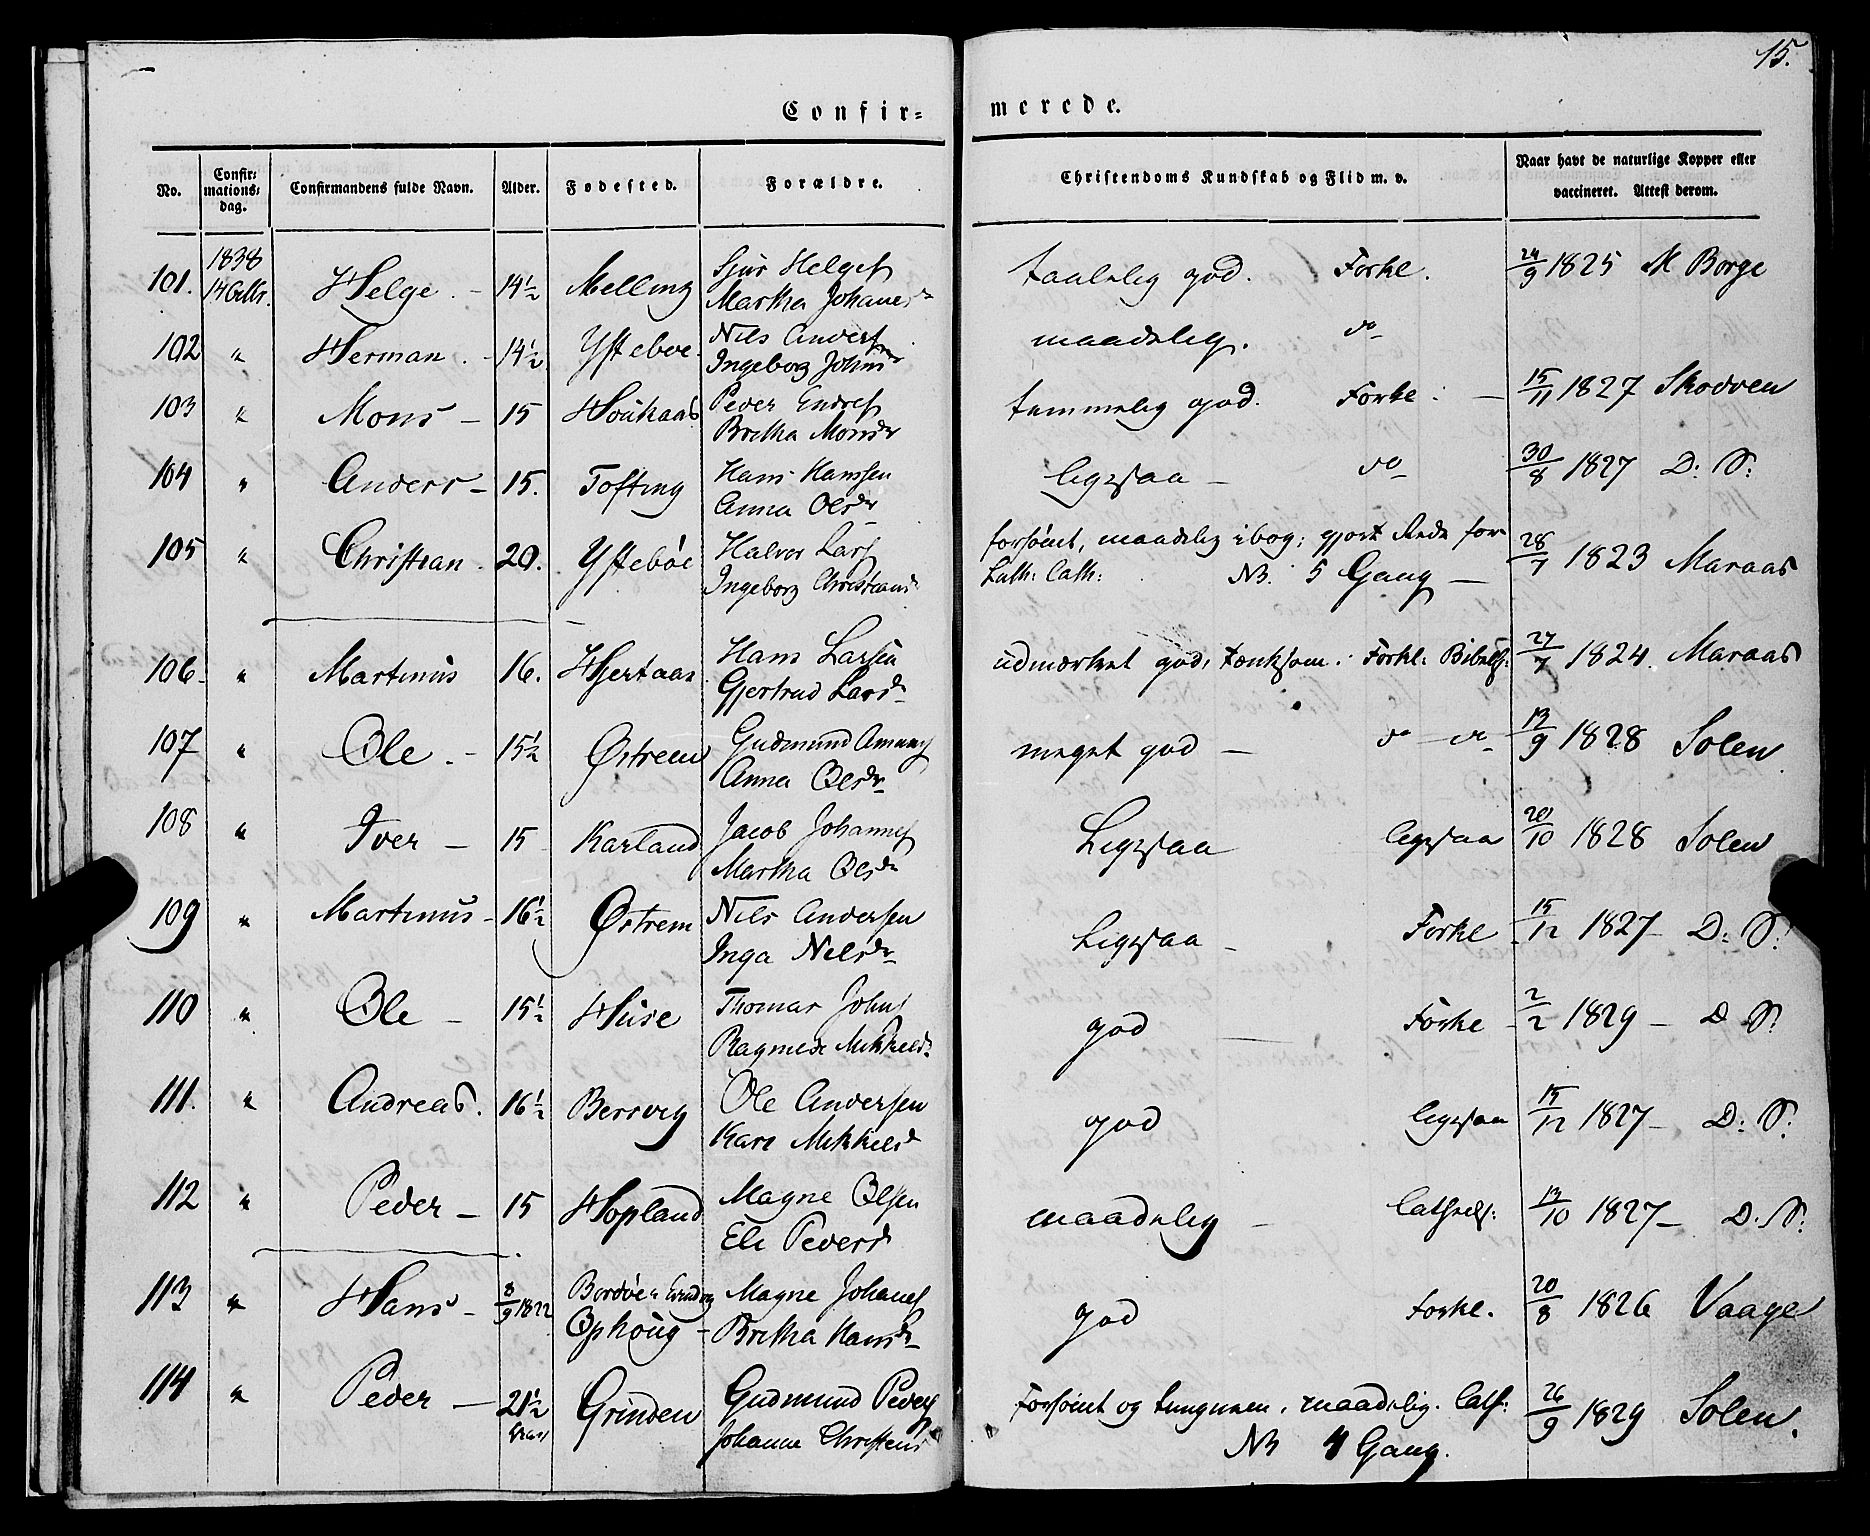 15.
Confir=
merede.
No.
Confir=
mations=
dag.
Confirmandens fulde Navn.
Alder.
Fødested.
Forældre.
Christendoms Kundskab og Flid m. v.
Naar havt de naturlige Kopper eller
vaccineret. Attest derom.
101. 1838 14 Octbr. Helge. – 14½ Melling Sjur Helges. taalelig god. Forkl. 24/9 1825 M Borge
Martha Johanesdr
102 " Herman. – 14½ Ystebøe. Nils Anders. maadelig. do
Ingeborg Johnsdr
103 " Mons – 15 Houkaas Peder Endres. temmelig god. Forkl. – 15/11 1827 Skodven
Britha Monsdr
104 " Anders – 15. Tofting Hans Hanssen ligesaa – do 30/8 1827 D: S:
Anna Olsdr
105 " Christian. 20. Ystebøe Halvor Lars. forsømt, maadelig i bog; gjort Rede for 28/7 1823 Maraas
Ingeborg Christiansdr Luth: Cath: NB. 5 Gang –
106. " Martinus 16. Hjertaas. Hans Larsen udmærket god, tænksom. Forkl: Bibelh: 27/7 1824. Maraas
Gjertrud Larsdr
107 " Ole. – 15½ Østrem Gudmund Amunds. meget god – do – do 13/9 1828 Solem
Anna Olsdr
108 " Iver – 15 Karland Jacob Johannes. Ligesaa ligesaa 20/10 1828 Solem
Martha Olsdr
109 " Martinus – 16½ Østrem Nils Andersen Ligesaa – Forkl 15/12 1827 – D: S:
Inga Nilsdr
110 " Ole – 15½ Huse Thomas Johns. god Forkl – 2/2 1829 – D S:
Mikkelsdr
111. " Andreas. 16½ Bersvig Ole Andersen god ligesaa 15/12 1827 – D: S:
Kari Mikkelsdr
112 " Peder – 15 Hopland Magne Olsen maadelig – Cathech: 13/10 1827 – D. S:
Eli Pedersdr
113 " Hans – 8/9 1822 Bordøe i Magne Johanes. god Forkl. 20/8 1826 Vaage
Ophoug – Britha Hansdr
114 " Peder – 21½ Grinden Gudmund Peders. Forsømt og tungnem, maadelig. Cath: 26/9 1829 Solem.
Johanna Christensdr NB 4 Gang.